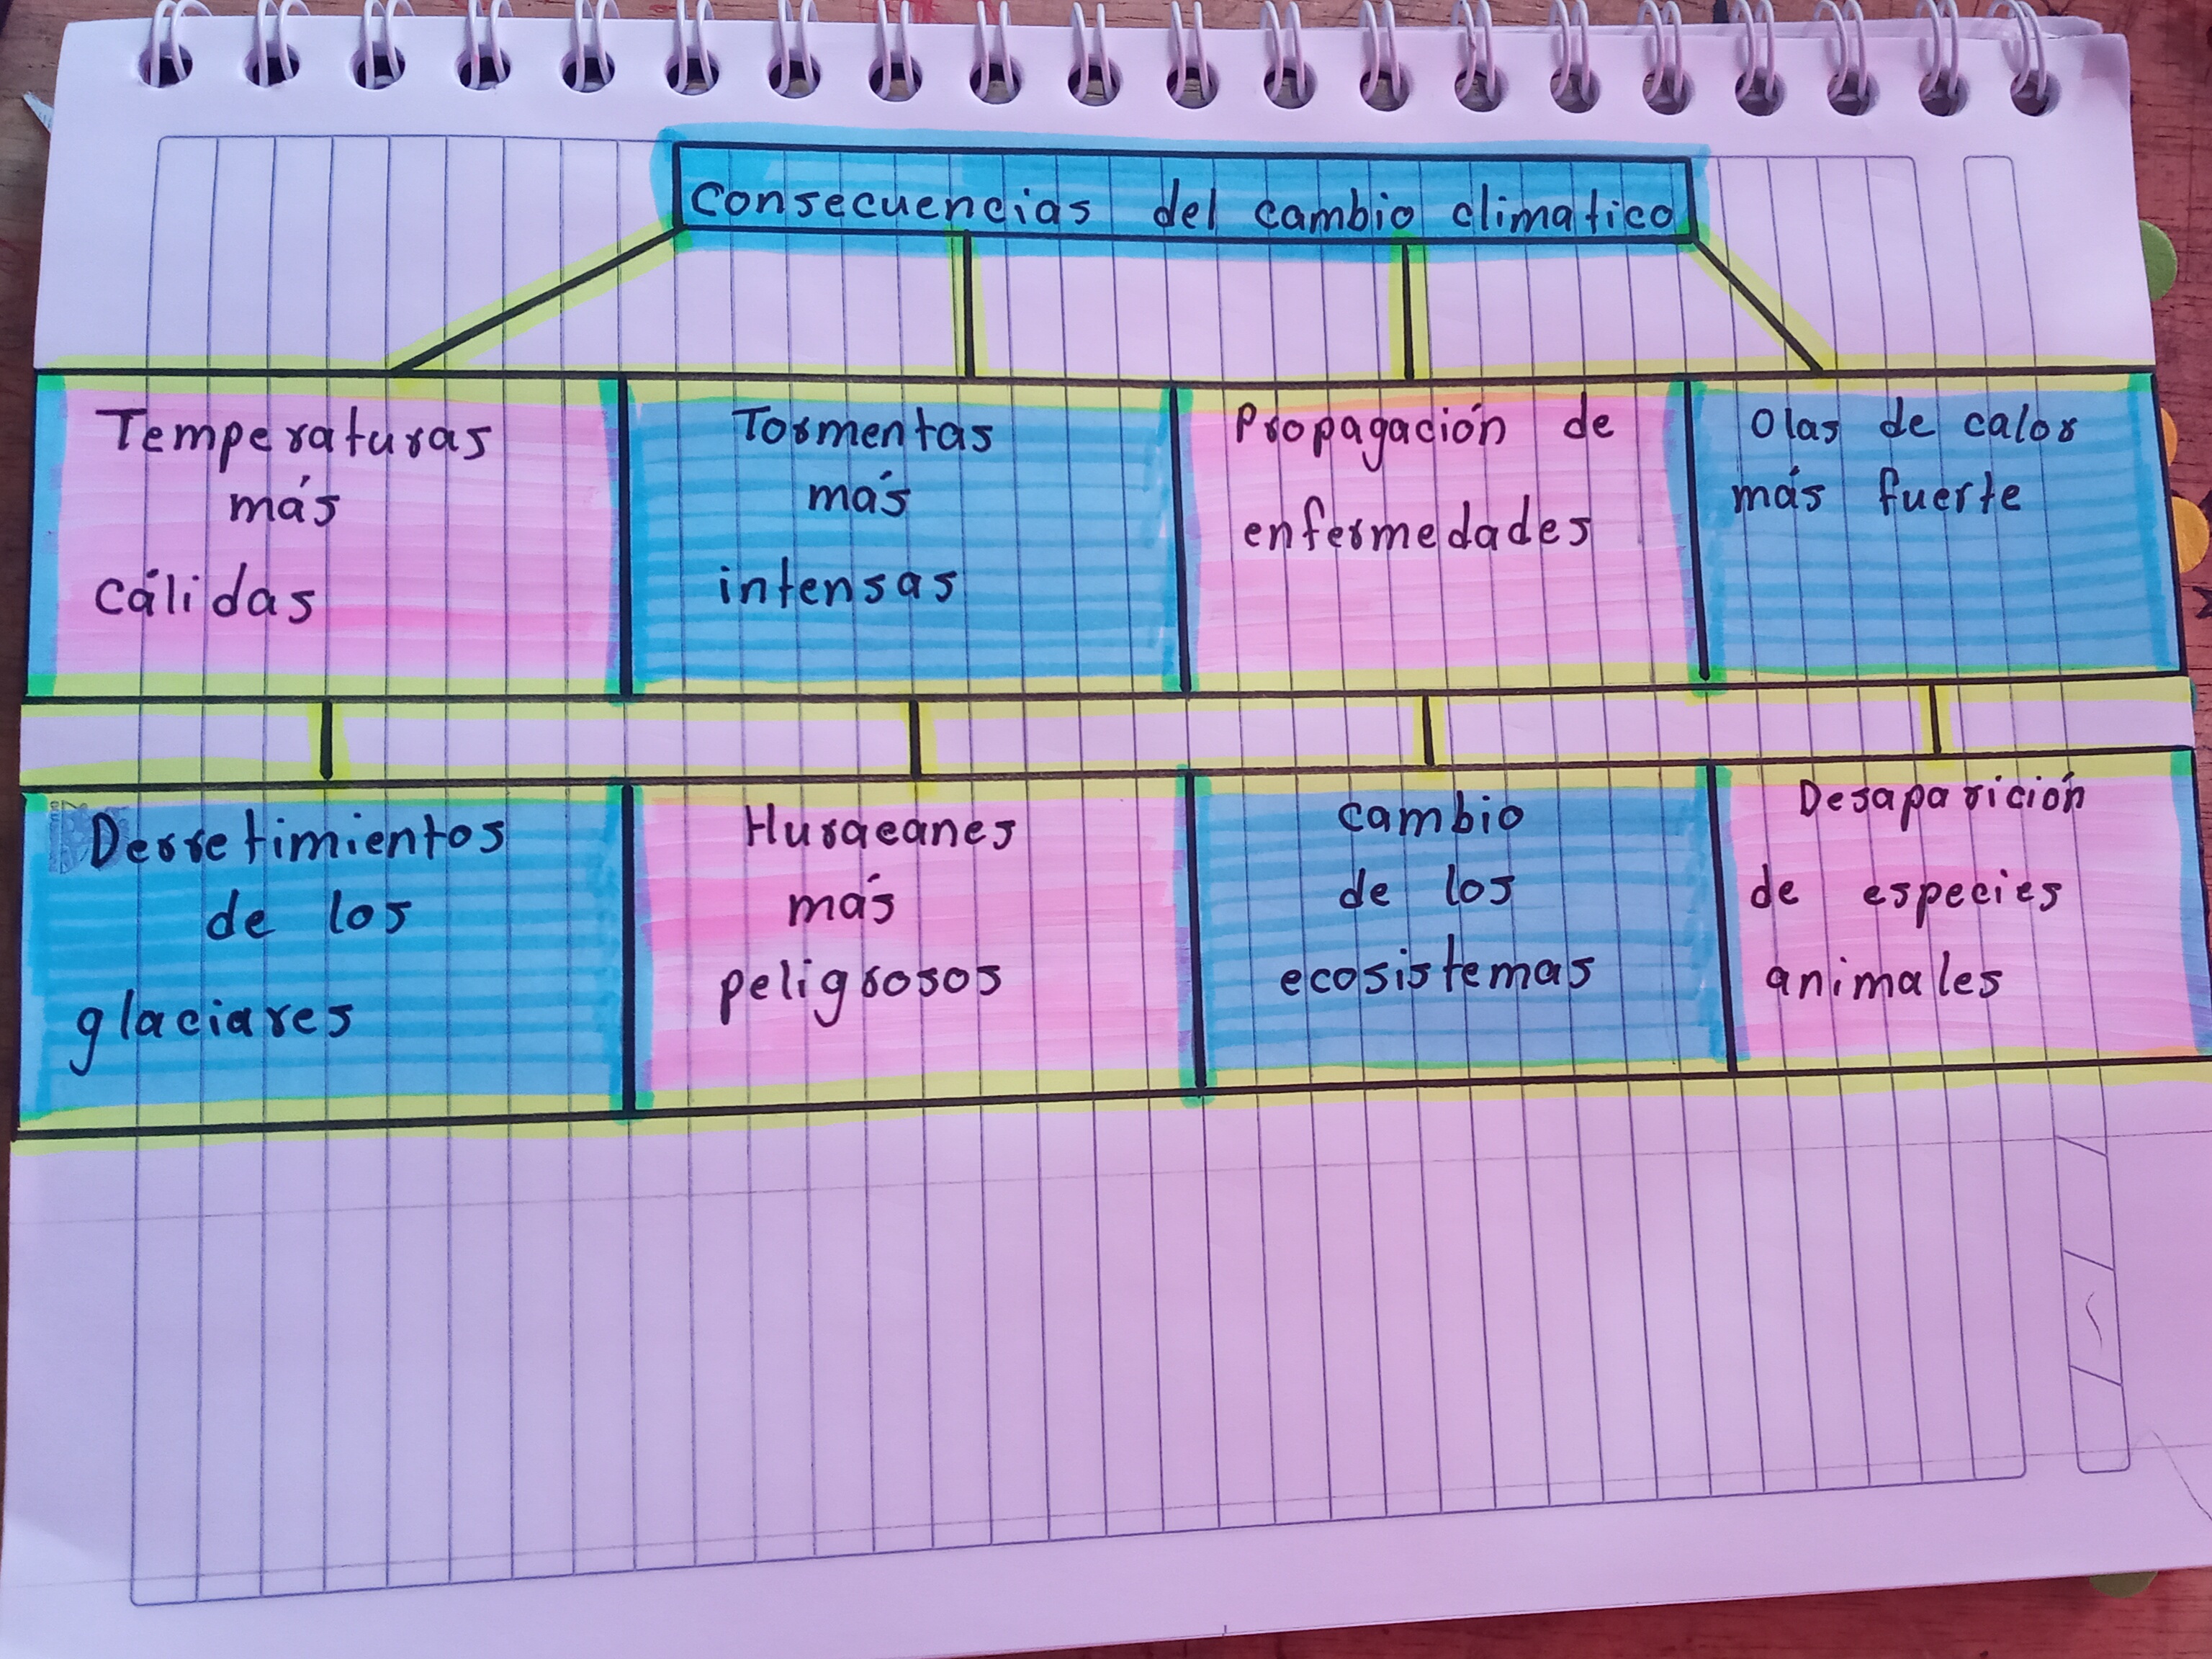 Consecuencias del cambio climatico
Temperaturas
más
cálidas
Tormentas
más
intensas
Propagación de
enfermedades
Olas de calor
más fuerte
Derretimientos
de los
glaciares
Huracanes
más
peligrosos
cambio
de los
ecosistemas
Desaparición
de especies
animales